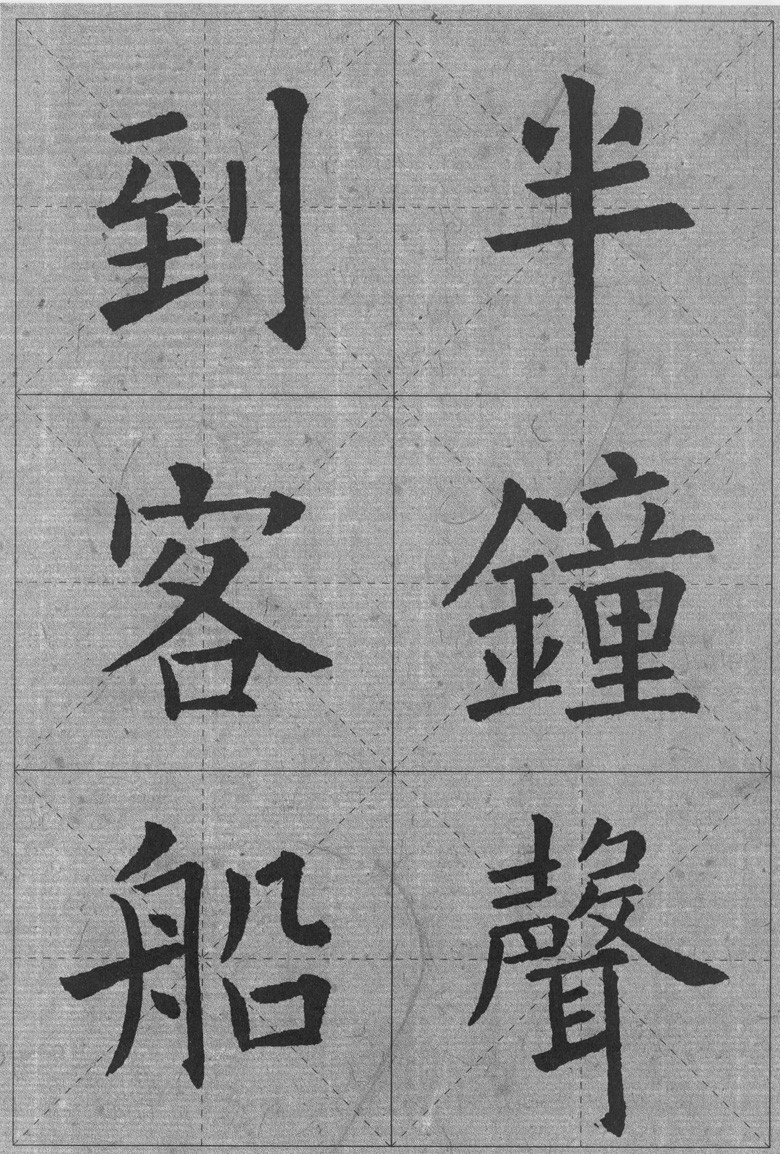 半鐘聲
到客船